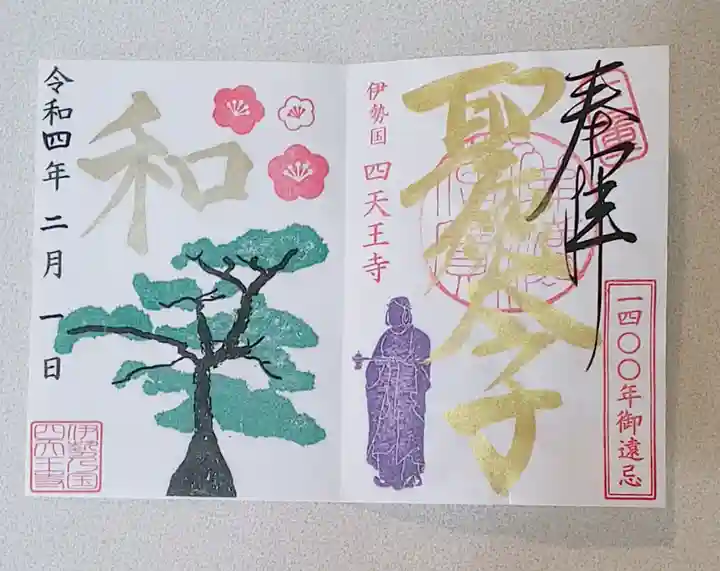 奉拝
聖太子
一四〇〇年御遠忌
伊勢国 四天王寺
和
令和四年二月一日
伊勢乃国
四天王寺